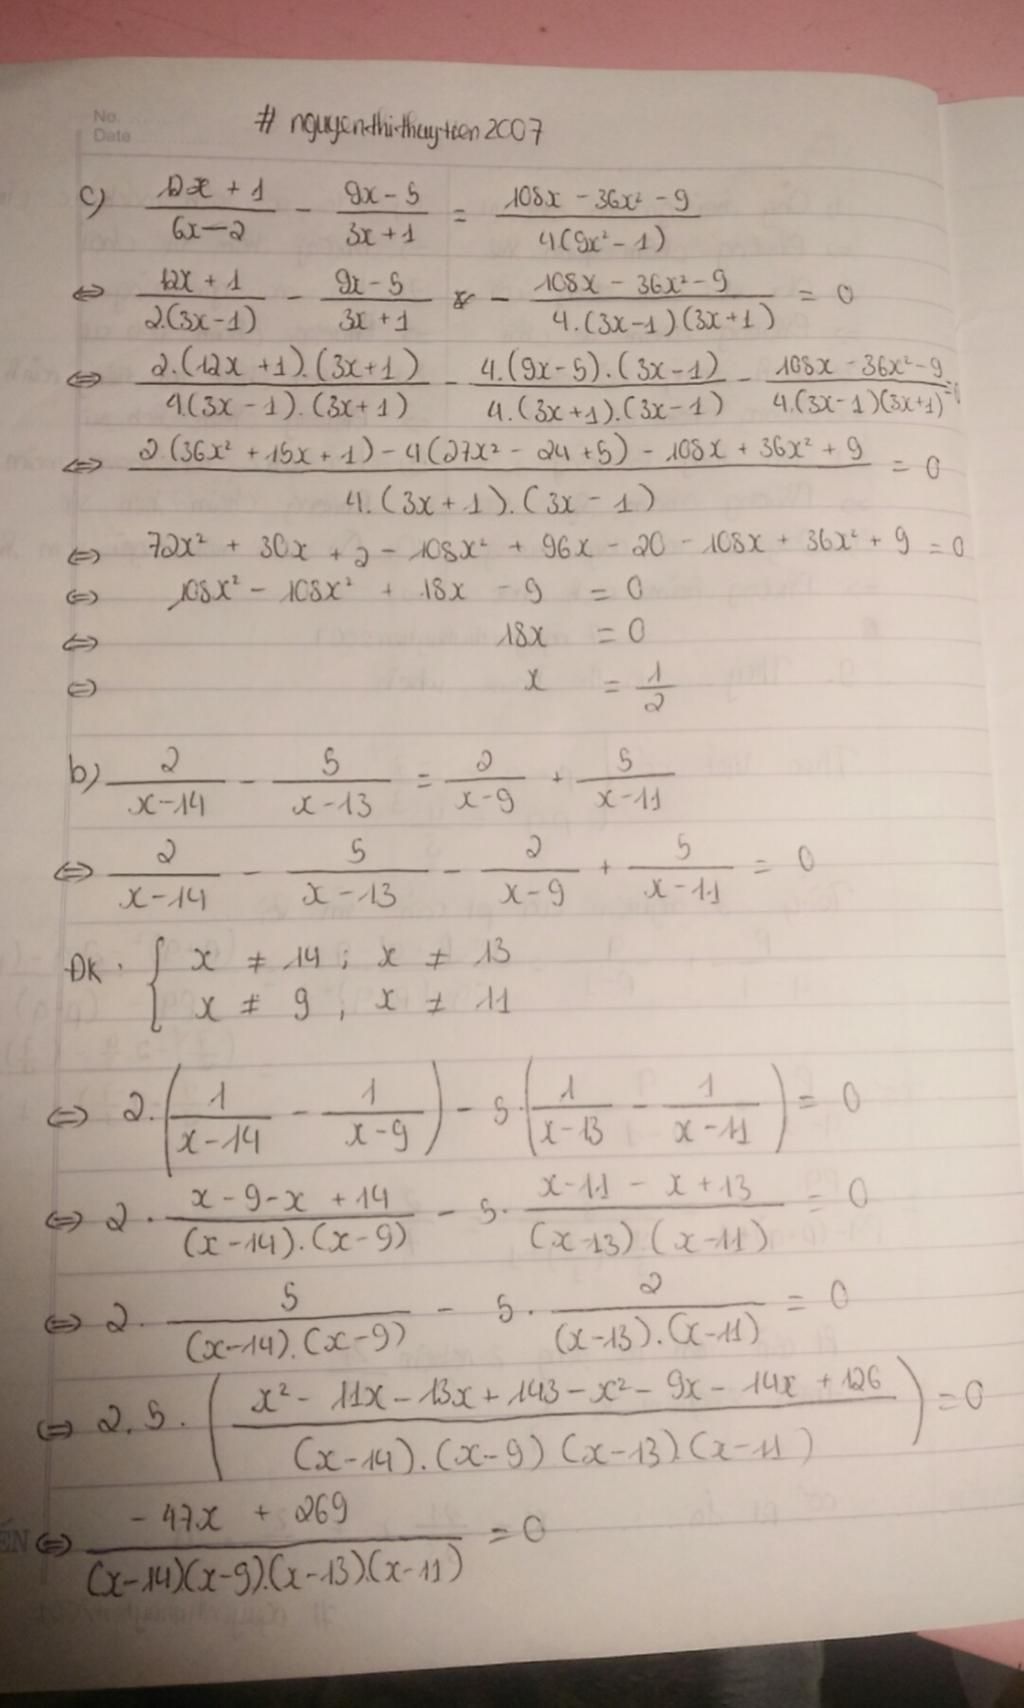 No.
Date
# nguyenthithuytien2007
c) \frac{12x + 1}{6x - 2} - \frac{9x - 5}{3x + 1} = \frac{108x - 36x² - 9}{4(9x² - 1)}
⇔ \frac{12x + 1}{2(3x - 1)} - \frac{9x - 5}{3x + 1} - \frac{108x - 36x² - 9}{4.(3x - 1)(3x + 1)} = 0
⇔ \frac{2.(12x + 1).(3x + 1)}{4.(3x - 1).(3x + 1)} - \frac{4.(9x - 5).(3x - 1)}{4.(3x + 1).(3x - 1)} - \frac{108x - 36x² - 9}{4.(3x - 1)(3x + 1)} = 0
⇔ \frac{2.(36x² + 15x + 1) - 4(27x² - 24 + 5) - 108x + 36x² + 9}{4.(3x + 1).(3x - 1)} = 0
⇔ 72x² + 30x + 2 - 108x² + 96x - 20 - 108x + 36x² + 9 = 0
⇔ 108x² - 108x² + 18x - 9 = 0
⇔ 18x = 0
⇔ x = \frac{1}{2}
b) \frac{2}{x - 14} - \frac{5}{x - 13} = \frac{2}{x - 9} + \frac{5}{x - 11}
⇔ \frac{2}{x - 14} - \frac{5}{x - 13} - \frac{2}{x - 9} + \frac{5}{x - 11} = 0
ĐK: { x ≠ 14 ; x ≠ 13
x ≠ 9 ; x ≠ 11
⇔ 2.(\frac{1}{x - 14} - \frac{1}{x - 9}) - 5.(\frac{1}{x - 13} - \frac{1}{x - 11}) = 0
⇔ 2 . \frac{x - 9 - x + 14}{(x - 14).(x - 9)} - 5. \frac{x - 11 - x + 13}{(x - 13)(x - 11)} = 0
⇔ 2. \frac{5}{(x - 14).(x - 9)} - 5. \frac{2}{(x - 13).(x - 11)} = 0
⇔ 2.5.(\frac{x² - 11x - 13x + 143 - x² - 9x - 14x + 126}{(x - 14).(x - 9)(x - 13).(x - 11)}) = 0
⇔ \frac{- 47x + 269}{(x - 14)(x - 9).(x - 13).(x - 11)} = 0